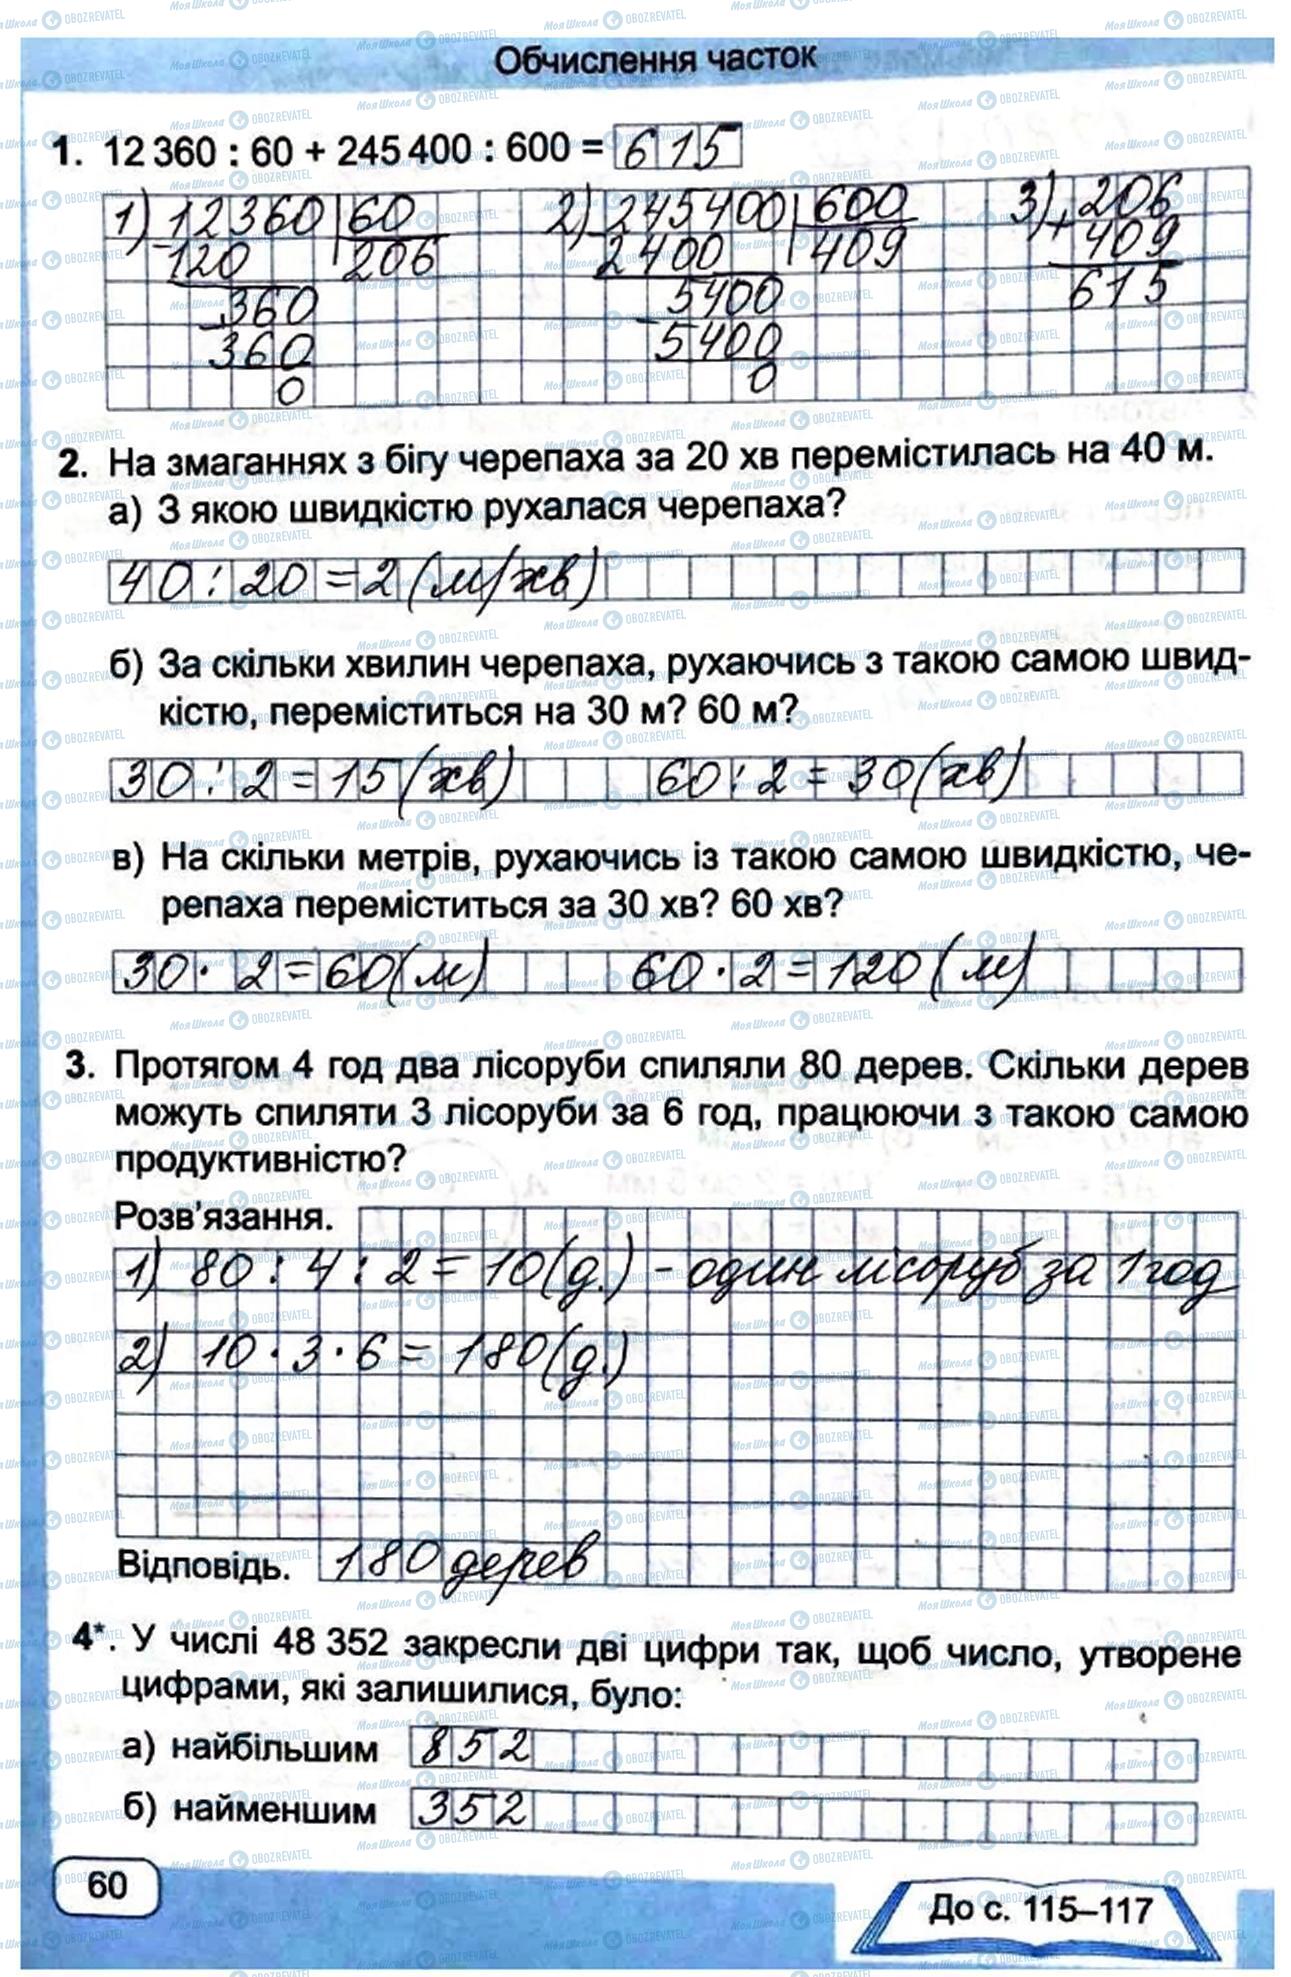 Обчислення часток
1. 12 360 : 60 + 245 400 : 600 = 615
1) 12360 60 2) 245400 600 3) 206
120 206 2400 409 + 409
360 5400 615
360 5400
0 0
2. На змаганнях з бігу черепаха за 20 хв перемістилась на 40 м.
а) З якою швидкістю рухалася черепаха?
40 : 20 = 2 (м/хв)
б) За скільки хвилин черепаха, рухаючись з такою самою швид-
кістю, переміститься на 30 м? 60 м?
30 : 2 = 15 (хв) 60 : 2 = 30 (хв)
в) На скільки метрів, рухаючись із такою самою швидкістю, че-
репаха переміститься за 30 хв? 60 хв?
30 · 2 = 60 (м) 60 · 2 = 120 (м)
3. Протягом 4 год два лісоруби спиляли 80 дерев. Скільки дерев
можуть спиляти 3 лісоруби за 6 год, працюючи з такою самою
продуктивністю?
Розв'язання.
1) 80 : 4 : 2 = 10 (д.) - один лісоруб за 1 год
2) 10 · 3 · 6 = 180 (д.)
Відповідь. 180 дерев
4*. У числі 48 352 закресли дві цифри так, щоб число, утворене
цифрами, які залишилися, було:
а) найбільшим 852
б) найменшим 352
60
До с. 115–117
Моя Школа OBOZREVATEL